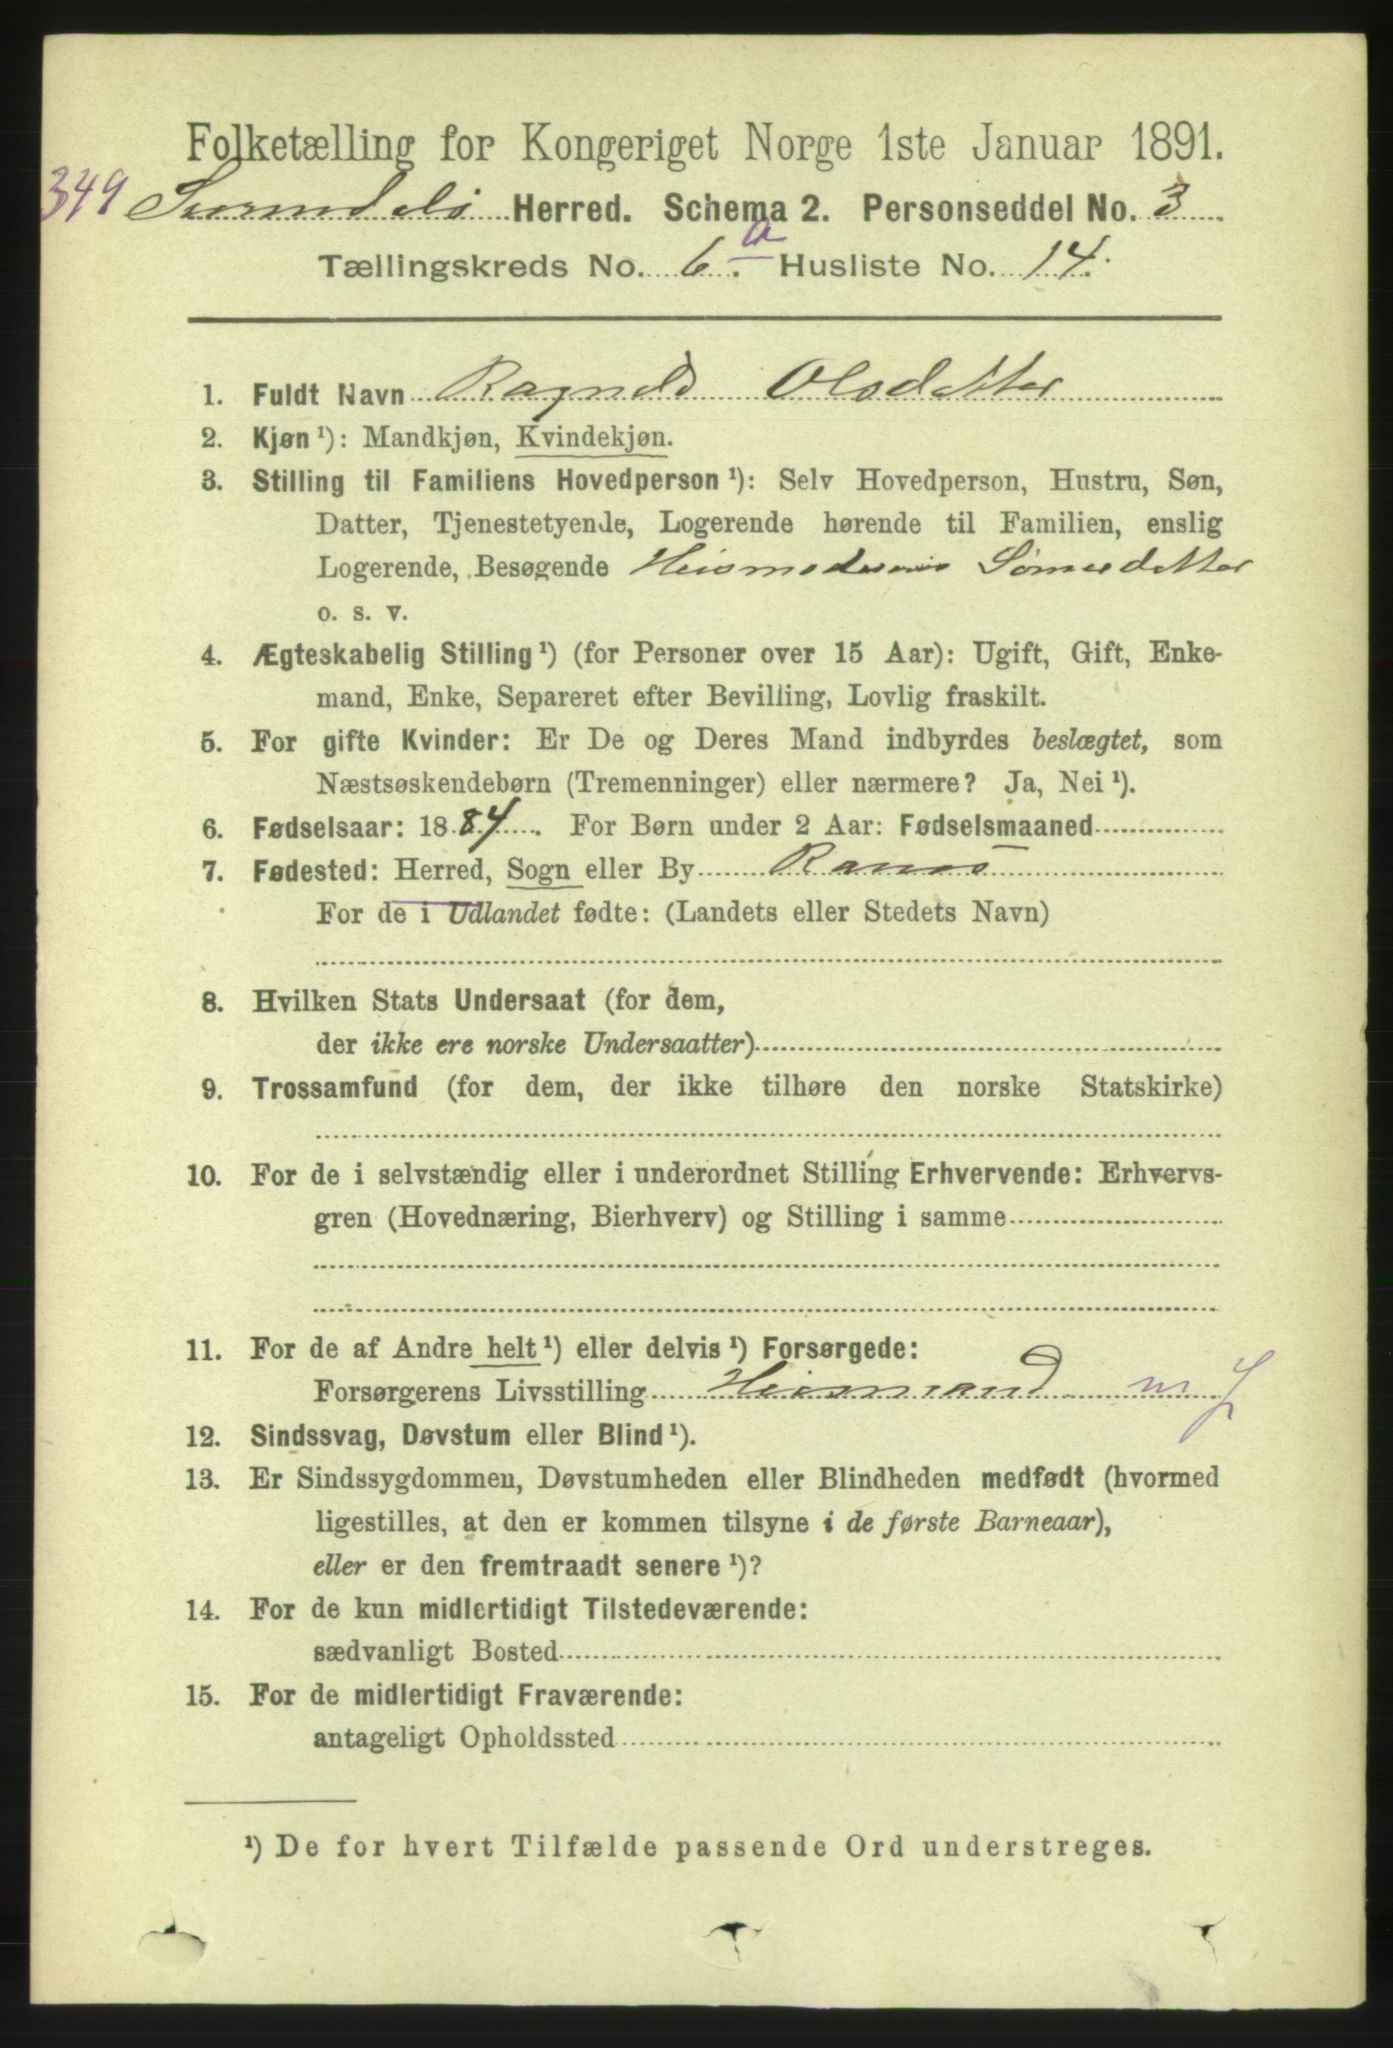 Folketælling for Kongeriget Norge 1ste Januar 1891.
349 Surendals Herred. Schema 2. Personseddel No. 3
Tællingskreds No. 6 a. Husliste No. 14.
1. Fuldt Navn Ragnild Olsdatter
2. Kjøn ¹): Mandkjøn, Kvindekjøn.
3. Stilling til Familiens Hovedperson ¹): Selv Hovedperson, Hustru, Søn,
Datter, Tjenestetyende, Logerende hørende til Familien, enslig
Logerende, Besøgende Huusmoderens Sønnedatter
o. s. v.
4. Ægteskabelig Stilling ¹) (for Personer over 15 Aar): Ugift, Gift, Enke-
mand, Enke, Separeret efter Bevilling, Lovlig fraskilt.
5. For gifte Kvinder: Er De og Deres Mand indbyrdes beslægtet, som
Næstsøskendebørn (Tremenninger) eller nærmere? Ja, Nei ¹).
6. Fødselsaar: 1884. For Børn under 2 Aar: Fødselsmaaned
7. Fødested: Herred, Sogn eller By Ranes
For de i Udlandet fødte: (Landets eller Stedets Navn)
8. Hvilken Stats Undersaat (for dem,
der ikke ere norske Undersaatter)
9. Trossamfund (for dem, der ikke tilhøre den norske Statskirke)
10. For de i selvstændig eller i underordnet Stilling Erhvervende: Erhvervs-
gren (Hovednæring, Bierhverv) og Stilling i samme
11. For de af Andre helt ¹) eller delvis ¹) Forsørgede:
Forsørgerens Livsstilling Huusmand m J
12. Sindssvag, Døvstum eller Blind ¹).
13. Er Sindssygdommen, Døvstumheden eller Blindheden medfødt (hvormed
ligestilles, at den er kommen tilsyne i de første Barneaar),
eller er den fremtraadt senere ¹)?
14. For de kun midlertidigt Tilstedeværende:
sædvanligt Bosted
15. For de midlertidigt Fraværende:
antageligt Opholdssted
¹) De for hvert Tilfælde passende Ord understreges.